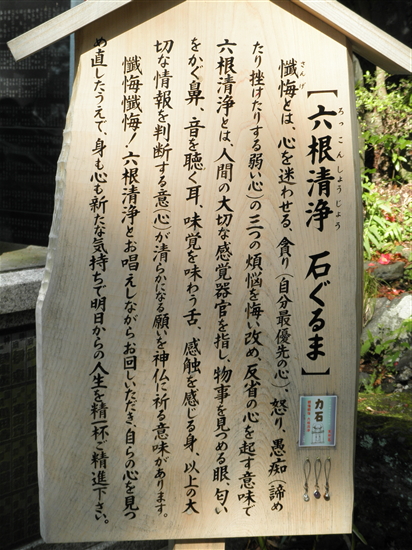 【六根清浄 石ぐるま】
ろっこんしょうじょう
懺悔とは、心を迷わせる、貪り(自分最優先の心)、怒り、愚痴(諦め
さんげ
たり挫けたりする弱い心)の三つの煩悩を悔い改め、反省の心を起す意味で
六根清浄とは、人間の大切な感覚器官を指し、物事を見つめる眼、匂い
をかぐ鼻、音を聴く耳、味覚を味わう舌、感触を感じる身、以上の大
切な情報を判断する意(心)が清らかになる願いを神仏に祈る意味があります。
懺悔懺悔!六根清浄とお唱えしながらお回しいただき、自らの心を見つ
め直したうえで、身も心も新たな気持ちで明日からの人生を精一杯ご精進下さい。
力石